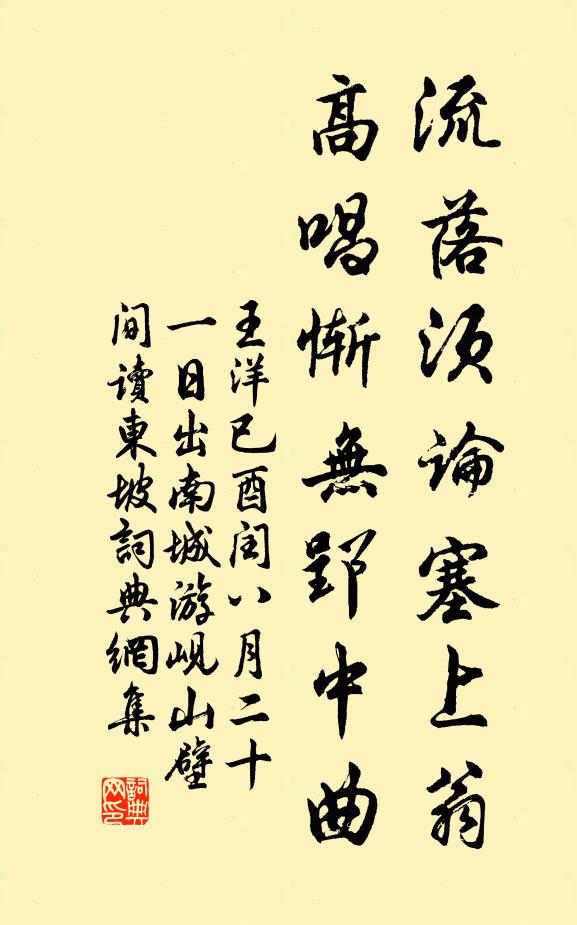 流落須論塞上翁
高唱慚無郢中曲
王洋己酉閏八月二十
一日出南城游峴山壁
間讀東坡詞典網集
詞典
网印